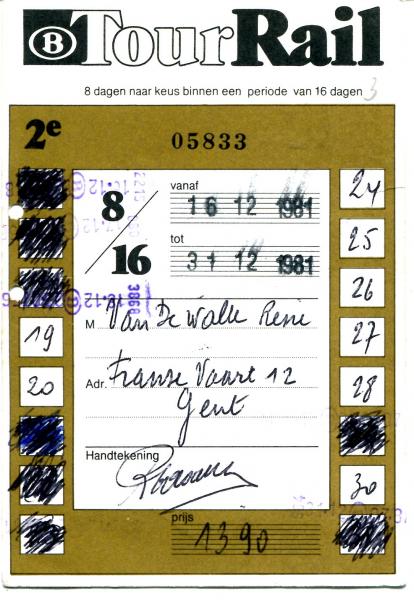 B TourRail
8 dagen naar keus binnen een periode van 16 dagen 3
2e
05833
8/16
vanaf
16 12 1981
tot
31 12 1981
24
25
26
19
27
20
28
30
M Van De Walle Rene
Adr. Franse Vaart 12
Gent
Handtekening
prijs
1390